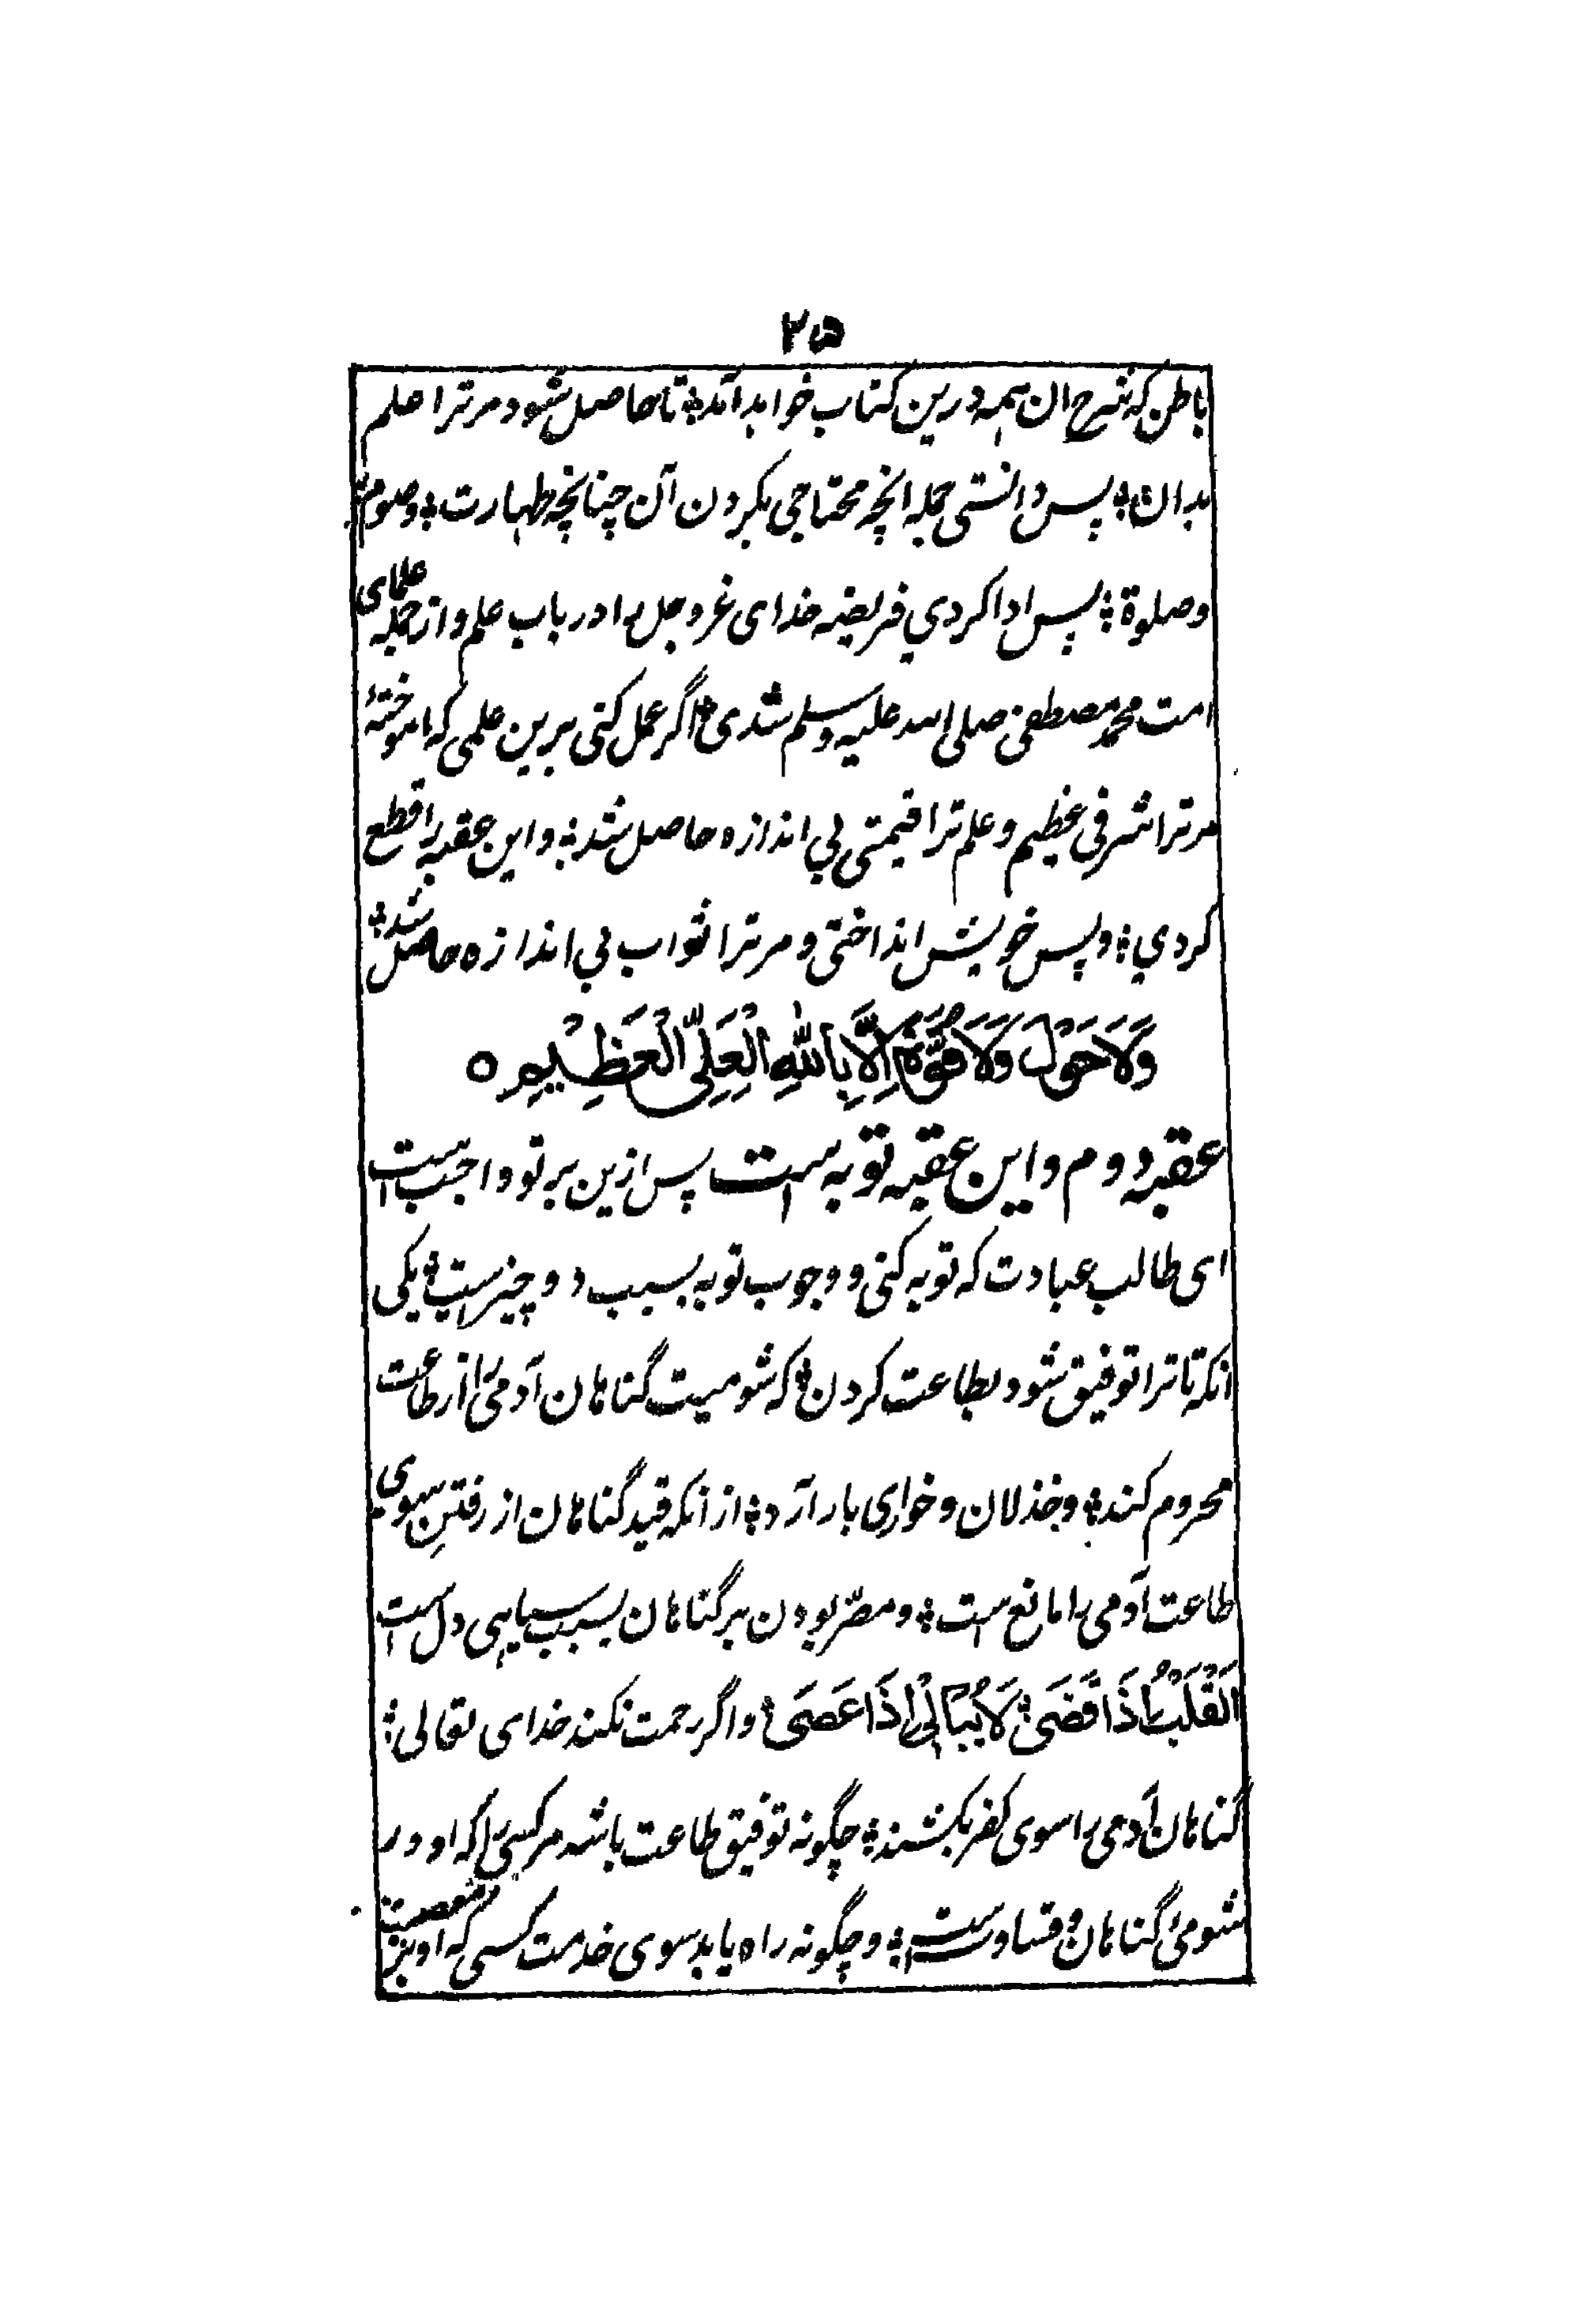 ۲۵
باطن که شرح ان همه درین کتاب خواهد آمد ؛ تا حاصل شود مر ترا علم
بدان ؛ پس دانستی جمله انچه محتاجی بکردن آن چنانچه طهارت ؛ و صوم ؛
وصلوة ؛ پس ادا کردي فریضه خدای عز و جل را در باب علم و از جمله علمای
امت محمد مصطفی صلی الله علیه وسلم شدی ؛ اگر عمل کنی برین علمی که اموختهٔ
مر ترا شرفی عظیم و علم ترا قیمتی بي اندازه حاصل شد ؛ و این عقبه را قطع
کردي ؛ و پس خویش انداختی و مر ترا ثواب بي اندازه حاصل شد ؛
وَلَا حَوْلَ وَلَا قُوَّةَ اِلَّا بِاللّٰهِ الْعَلِیِّ الْعَظِیْمِ ○
عقبه دوم و این عقبه توبه است پس ازین بر تو واجب است
ای طالب عبادت که توبه کنی و وجوب توبه بسبب دو چیز است ؛ یکی
انکه تا ترا توفیق شود بطاعت کردن ؛ که شومیت گناهان آدمی را از طاعت
محروم کند ؛ و خذلان و خواری بار آرد ؛ از انکه قید گناهان از رفتنِ سوی
طاعت آدمی را مانع است ؛ و مصرّ بودن بر گناهان بسبب سیاهی دل است
اَلْقَلْبُ اِذَا قَضَی ؛ لَا یُبَالِیْ اِذَا عَصَی ؛ و اگر رحمت نکند خدای تعالی ؛
گناهان آدمی را سوی کفر بکشند ؛ چگونه توفیق طاعت باشد مر کسی را که او در
شومئ گناهان و قساوت است ؛ و چگونه راه یابد سوی خدمت کسی که او بر معصیت